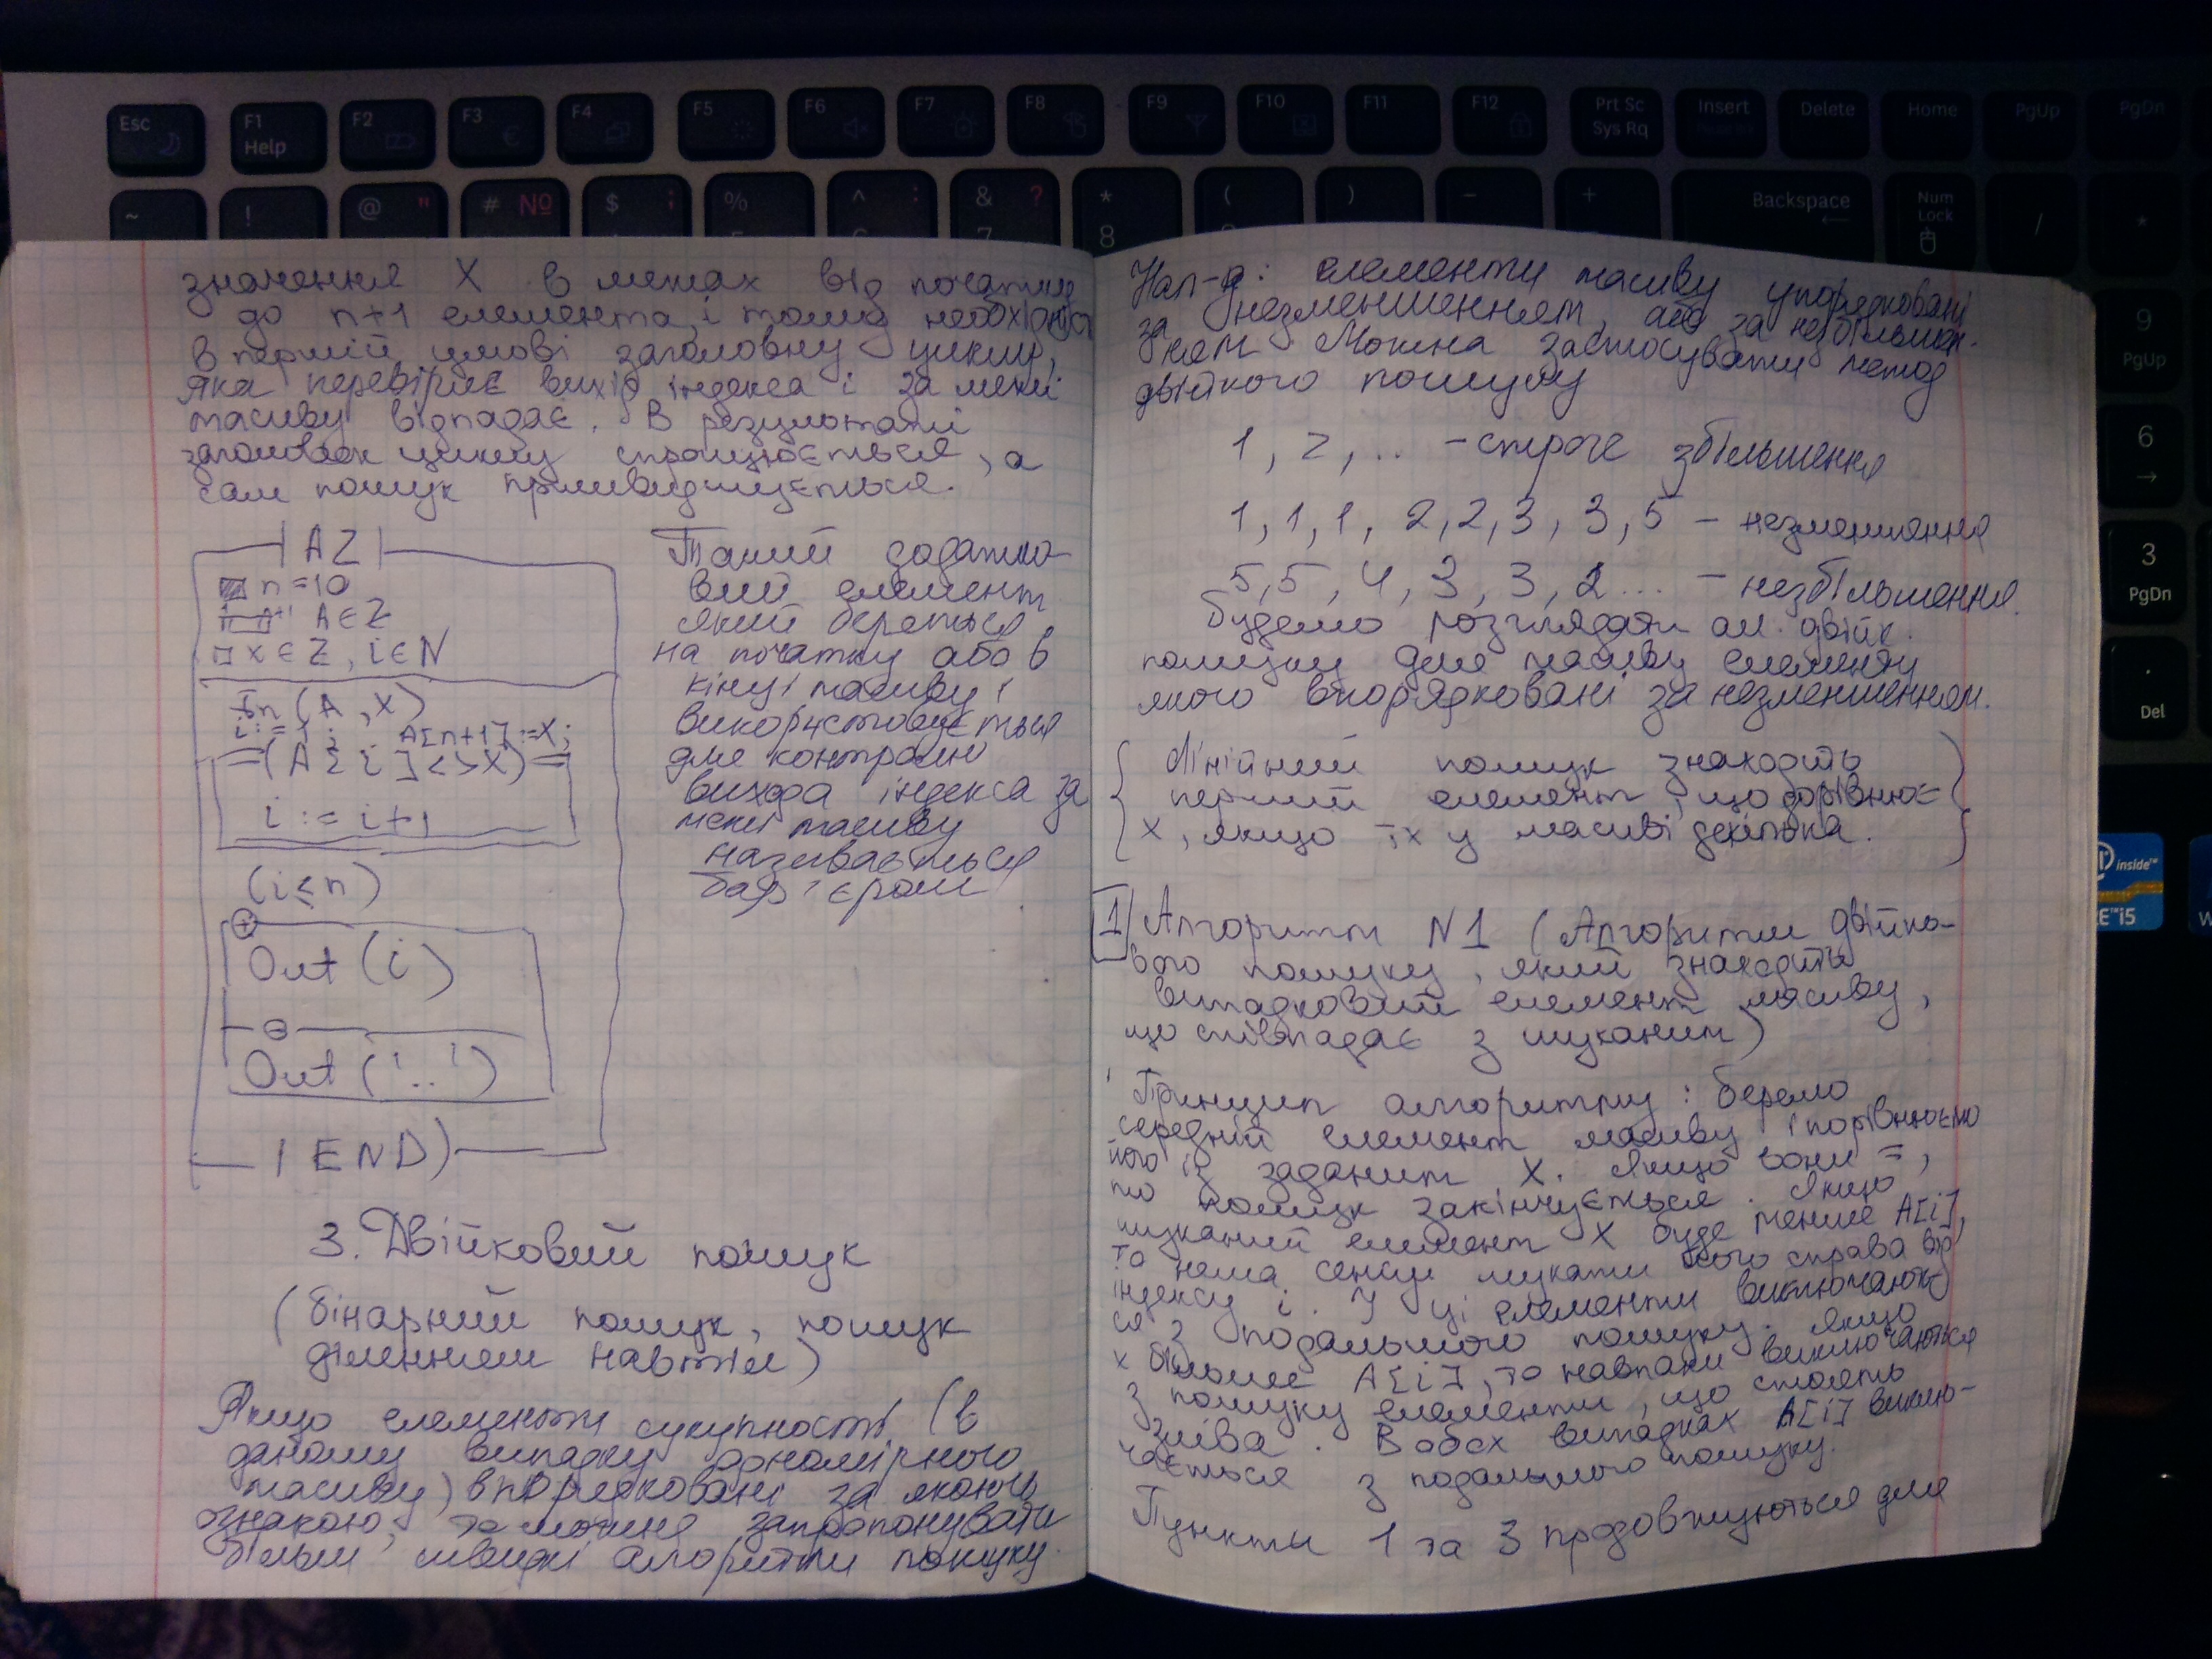 Esc
F1
Help
F2
F3
F4
F5
F6
F7
F8
F9
F10
F11
F12
Prt Sc
Sys Rq
Insert
Delete
Home
PgUp
PgDn
~
!
@ "
# №
$ ;
%
^ :
& ?
7
*
8
(
)
-
+
Backspace
Num
Lock
/
*
9
PgUp
6
→
3
PgDn
.
Del
inside™
E™i5
значення X в межах від початку
до n+1 елемента, і тому необхідність
в першій умові заголовку циклу,
яка перевіряє вихід індекса і за межі
масиву відпадає. В результаті
заголовок циклу спрощюється, а
сам пошук пришвидшується.
AZ
n=10
A∈Z
x∈Z, i∈N
In (A, X)
i:=1; A[n+1]:=X;
=(A[i]<>X)=
i := i+1
(i≤n)
+
Out (i)
Out ('..')
END)
Такий додатко-
вий елемент
який береться
на початку або в
кінці масиву і
використовується
для контролю
вихода індекса за
межі масиву
називається
бар'єром
3. Двійковий пошук
(бінарний пошук, пошук
діленням навпіл)
Якщо елементи сукупності (в
даному випадку одномірного
масиву) впорядковані за якоюсь
ознакою, то можна запропонувати
більш швидкі алгоритми пошуку.
Нап-д: елементи масиву упорядковані
за незменшенням, або за незбільшен-
ням. Можна застосувати метод
двійкого пошуку
1, 2, .. - строге збільшення
1, 1, 1, 2, 2, 3, 3, 5 - незменшення
5, 5, 4, 3, 3, 2 ... - незбільшення.
Будемо розглядати ал. двійк.
пошуку для масиву елементи
якого впорядковані за незменшенням.
{ Лінійний пошук знаходить
перший елемент, що дорівнює
x, якщо їх у масиві декілька. }
1 Алгоритм N1 (Алгоритм двійко-
вого пошуку, який знаходить
випадковий елемент масиву,
що співпадає з шуканим)
Принцип алгоритму: беремо
середній елемент масиву і порівнюємо
його із заданим X. Якщо вони =,
то пошук закінчується. Якщо
шуканий елемент X буде менше A[i],
то нема сенсу шукати його справа від
індексу i. І ці елементи виключають
ся з подальшого пошуку. Якщо
x більше A[i], то навпаки виключаються
з пошуку елементи, що стоять
зліва. В обох випадках A[i] виклю-
чається з подальшого пошуку.
Пункти 1 та 3 продовжуються для